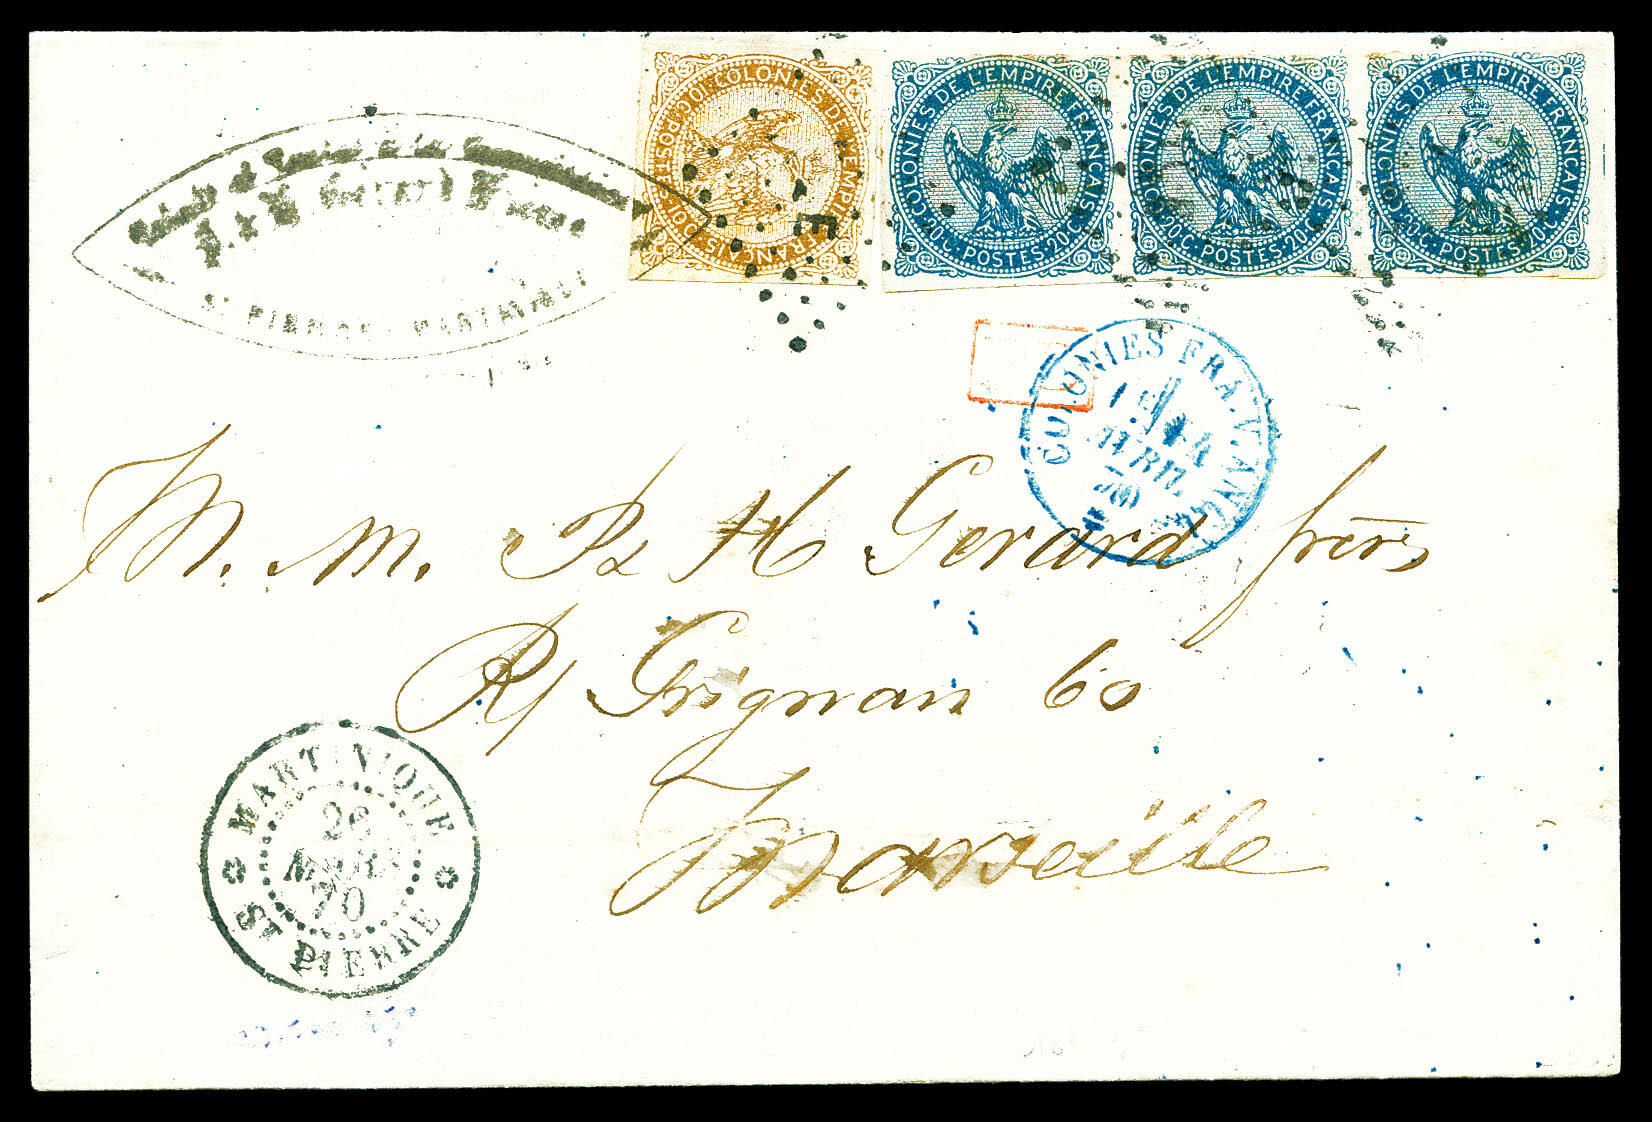 10.C.POSTES.10.C.COLONIES DE L'EMPIRE FRANÇAIS
COLONIES DE L'EMPIRE FRANÇAIS. 20.C. POSTES. 20.C.
COLONIES DE L'EMPIRE FRANÇAIS. 20.C. POSTES. 20.C.
COLONIES DE L'EMPIRE FRANÇAIS. 20.C. POSTES. 20.C.
St PIERRE MARTINIQUE
COLONIES FRA. V. ANGL.
AVRIL
70
M. M. P & H Gerard frères
R/ Grignan 60
Marseille
MARTINIQUE
26
MARS
70
St PIERRE